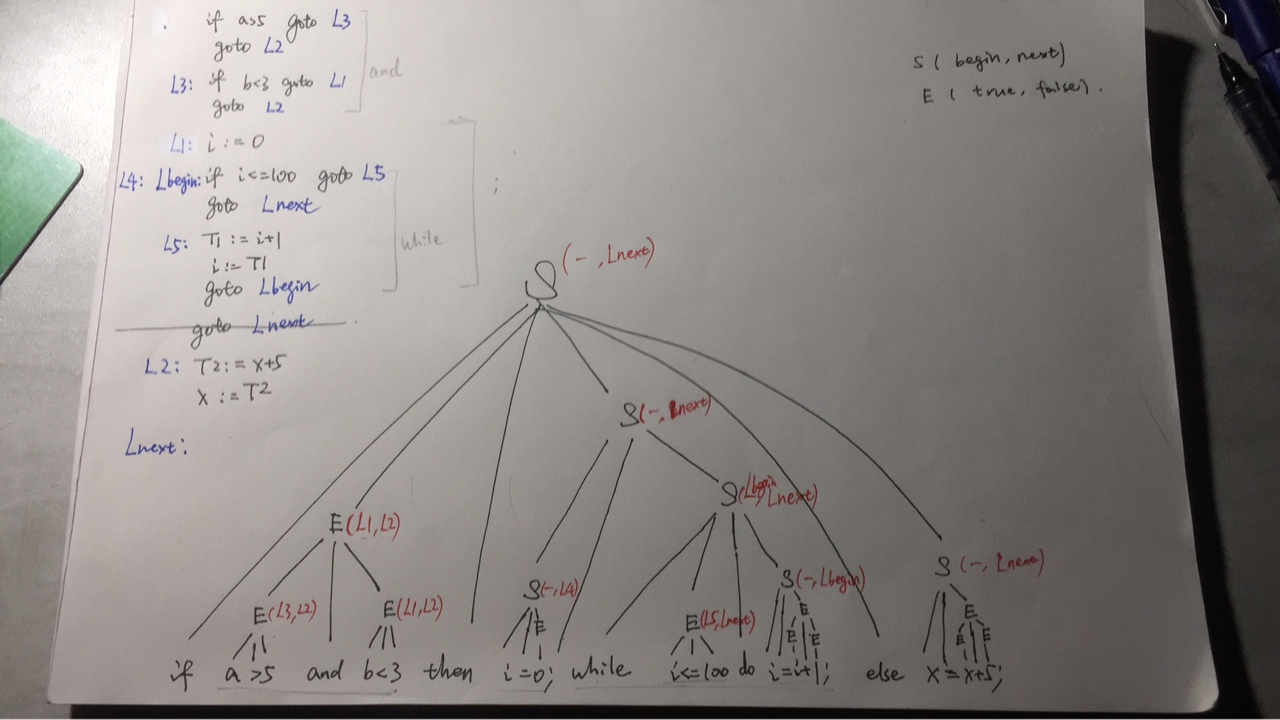 if a>5 goto L3
goto L2
L3: if b<3 goto L1
goto L2
and
L1: i := 0
L4: Lbegin: if i<=100 goto L5
goto Lnext
L5: T1 := i+1
i := T1
goto Lbegin
while
;
goto Lnext
L2: T2 := x+5
x := T2
Lnext:
S ( begin, next)
E ( true, false).
S (- , Lnext)
S(-, Lnext)
S(Lbegin, Lnext)
E(L1,L2)
S(-, Lnext)
S(-, L4)
S(-, Lbegin)
E(L3,L2)
E(L1,L2)
E
E(L5, Lnext)
E
E E
E
E E
if a>5 and b<3 then i=0; while i<=100 do i=i+1; else x=x+5;